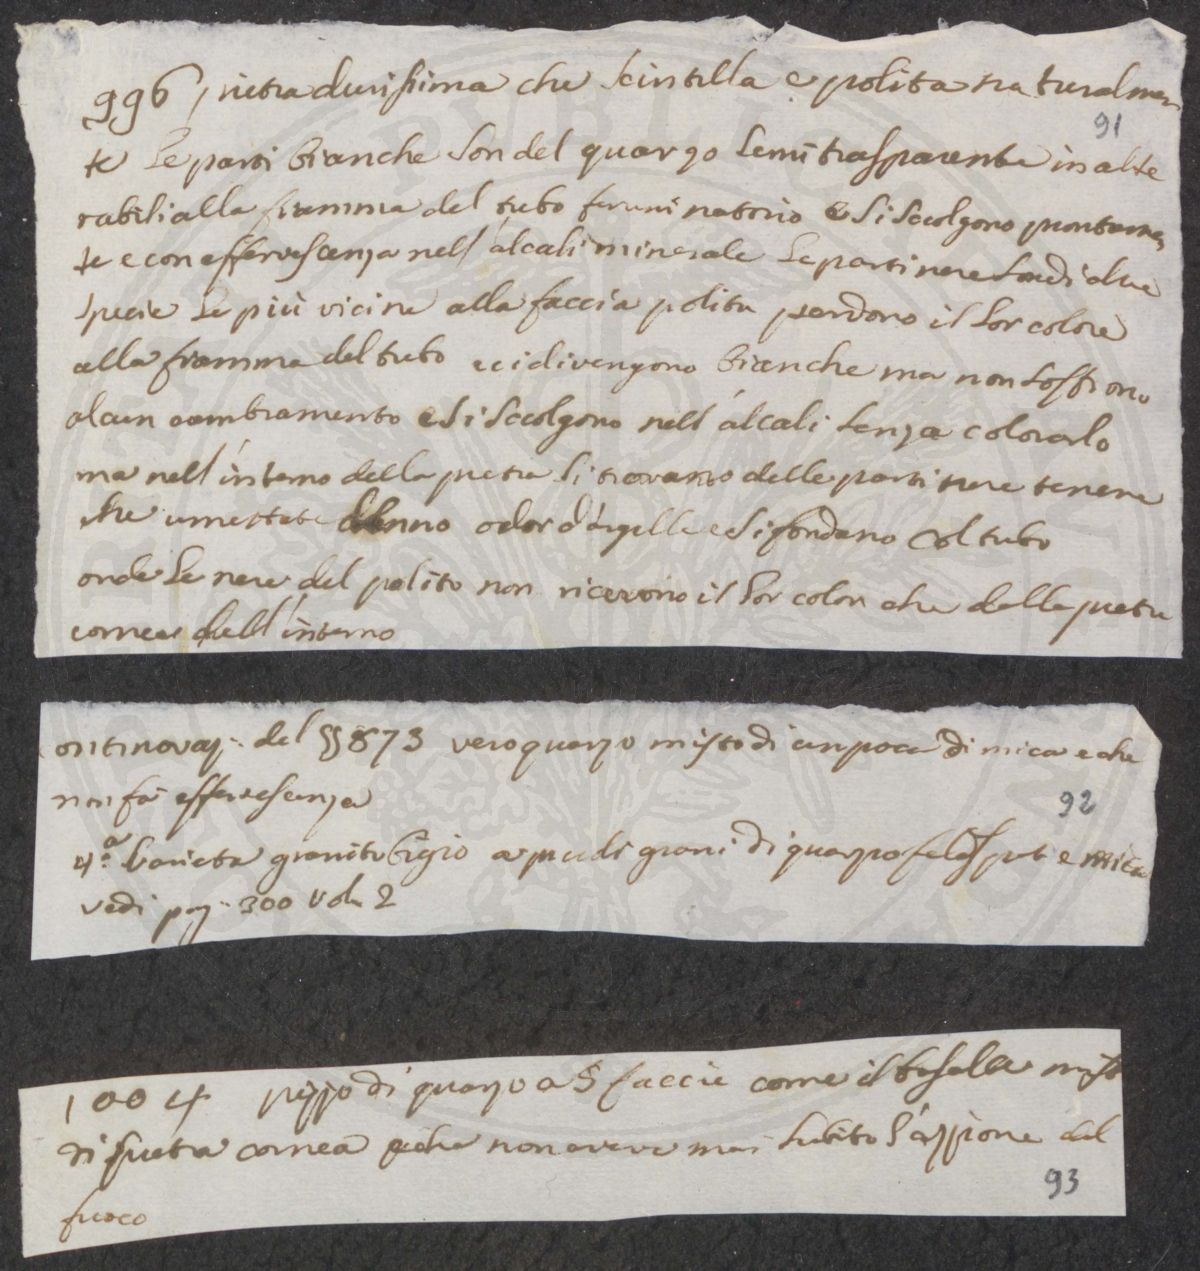 996 pietra durissima che scintilla e polita naturalmen
91
te Le parti bianche son del quarzo semitrasparente inalte
rabili alla fiamma del tubo feruminatorio e si sciolgono prontamen
te e con effervescenza nell'alcali minerale Le parti nere son di altre
specie Le più vicine alla faccia polita perdono il lor colore
alla fiamma del tubo e ci divengono bianche ma non soffrono
alcun cambiamento e si sciolgono nell'alcali senza colorarlo
ma nell'interno della pietra si trovano delle parti nere tenere
che umettate danno odor d'argilla e si fondano col tubo
onde Le nere del polito non ricevono il lor color che dalla pietra
cornea dell'interno
del §§ 873 vero quarzo misto di un poca di mica e che
non fà effervescenza
92
4.a Varieta granito bigio a piccoli grani di quarzo feldspat e mica
vedi pag. 300 Vol. 2
1004 pezzo di quarzo a 5 faccie come il basalte misto
di pietra cornea e che non aveve mai subito l'azzione del
93
fuoco